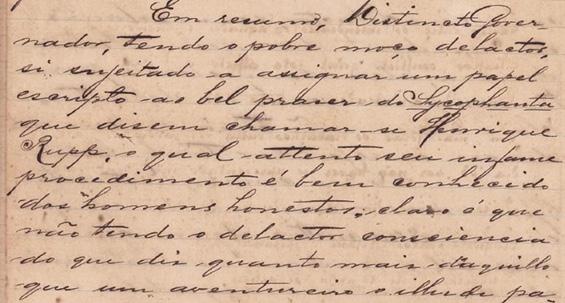 Em resumo, Distincto Gover-
nador, tendo o pobre moço delactor,
si sujeitado a assignar um papel
escripto ao bel praser do Sycophanta
que disem chamar-se Henrique
Rupp, o qual attento seu infame
procedimento é bem conhecido
dos homens honestos, claro é que
não tendo o delactor consciencia
do que diz quanto mais daquillo
que um aventureiro o illude pa-